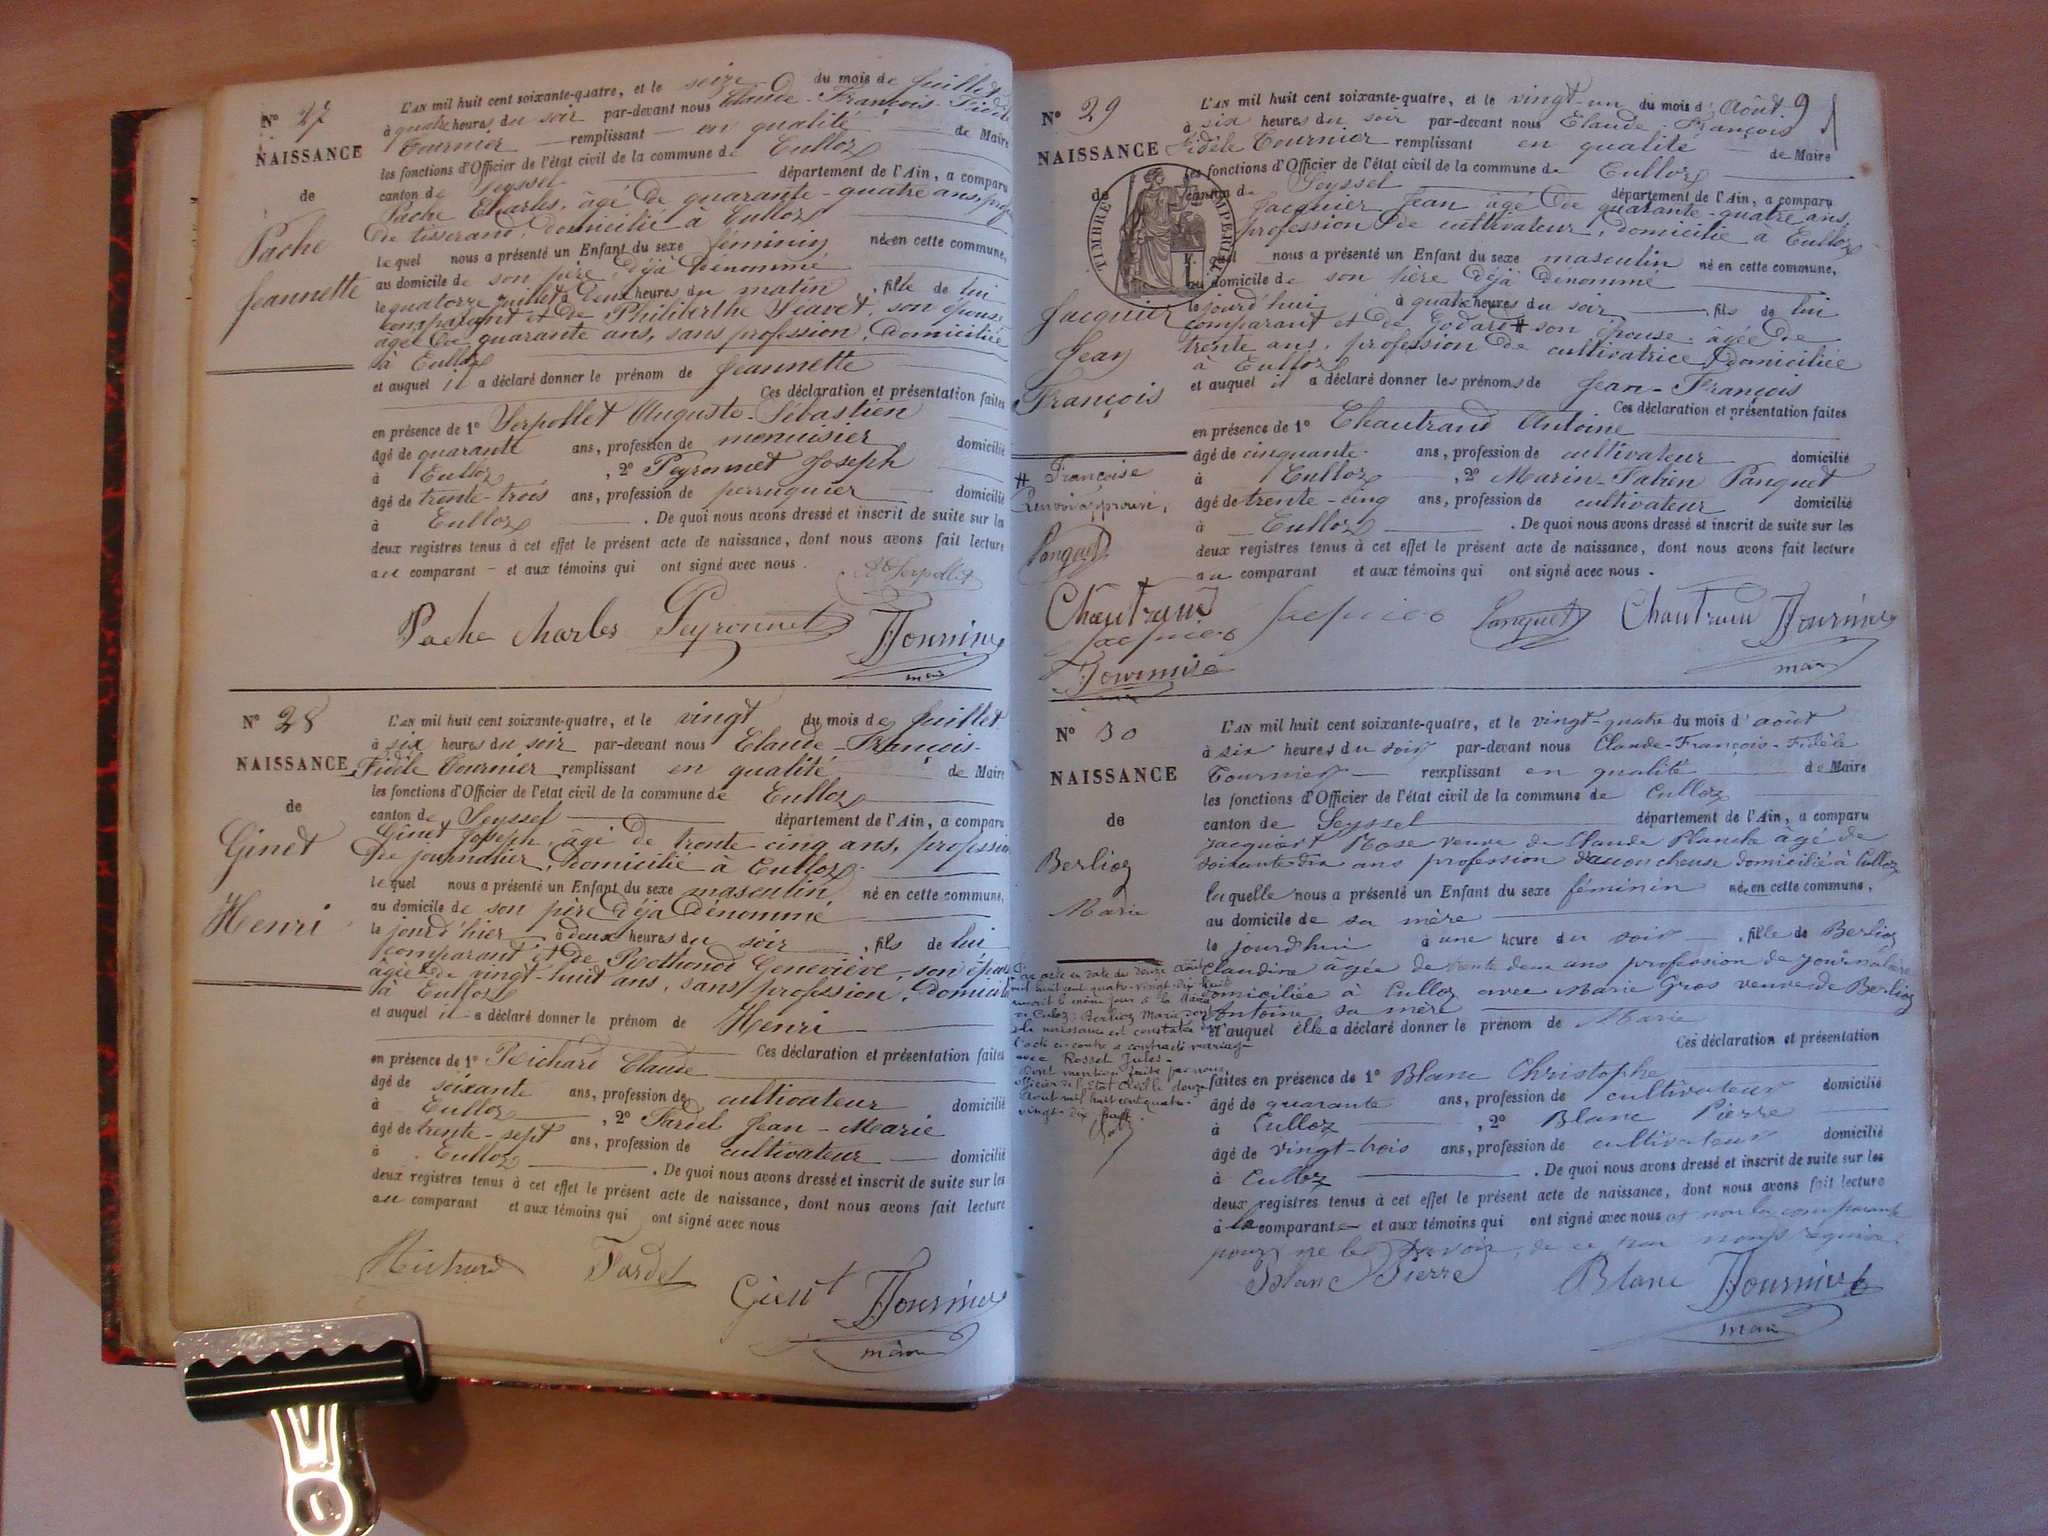 N° 27
NAISSANCE
de
Pache
Jeannette
L'AN mil huit cent soixante-quatre, et le seize du mois de Juillet
à quatre heures du soir par-devant nous Claude-François-Fidèle
Tournier remplissant en qualité de Maire
les fonctions d'Officier de l'état civil de la commune de Culloz
canton de Seyssel département de l'Ain, a comparu
Pache Charles, âgé de quarante-quatre ans, prof
de tisserand, domicilié à Culloz
lequel nous a présenté un Enfant du sexe féminin née en cette commune,
au domicile de son père déjà dénommé
le quatorze juillet à deux heures du matin, fille de lui
comparant et de Philiberthe son épouse
âgée de quarante ans, sans profession, domiciliée
à Culloz
et auquel il a déclaré donner le prénom de Jeannette
Ces déclaration et présentation faites
en présence de 1° Serpollet Auguste-Sébastien
âgé de quarante ans, profession de menuisier domicilié
à Culloz, 2° Peyronnet Joseph
âgé de trente-trois ans, profession de perruquier domicilié
à Culloz. De quoi nous avons dressé et inscrit de suite sur les
deux registres tenus à cet effet le présent acte de naissance, dont nous avons fait lecture
au comparant et aux témoins qui ont signé avec nous.
A Serpollet
Pache charles Peyronnet Tournier
maire
N° 28
NAISSANCE
de
Ginet
Henri
L'AN mil huit cent soixante-quatre, et le vingt du mois de Juillet
à six heures du soir par-devant nous Claude-François-
Fidèle Tournier remplissant en qualité de Maire
les fonctions d'Officier de l'état civil de la commune de Culloz
canton de Seyssel département de l'Ain, a comparu
Ginet Joseph, âgé de trente cinq ans, profession
de journalier, domicilié à Culloz
lequel nous a présenté un Enfant du sexe masculin, né en cette commune,
au domicile de son père déjà dénommé
le jourd'hier à deux heures du soir, fils de lui
comparant et de Rethond Geneviève, son épouse
âgée de vingt-huit ans, sans profession, domicili
à Culloz
et auquel il a déclaré donner le prénom de Henri
Ces déclaration et présentation faites
en présence de 1° Richard Claude
âgé de soixante ans, profession de cultivateur domicilié
à Culloz, 2° Fardel Jean-Marie
âgé de trente-sept ans, profession de cultivateur domicilié
à Culloz. De quoi nous avons dressé et inscrit de suite sur les
deux registres tenus à cet effet le présent acte de naissance, dont nous avons fait lecture
au comparant et aux témoins qui ont signé avec nous
Richard Fardel Ginet Tournier
maire
N° 29
NAISSANCE
de
TIMBRE IMPERIAL
Jacquier
Jean
François
# Françoise
Renvoi approuvé,
Panguet
Chautrand
Jacquier
Tournier
L'AN mil huit cent soixante-quatre, et le vingt-un du mois d'Août 9
à six heures du soir par-devant nous Claude-François
Fidèle Tournier remplissant en qualité de Maire
les fonctions d'Officier de l'état civil de la commune de Culloz
canton de Seyssel département de l'Ain, a comparu
Jacquier Jean âgé de quarante-quatre ans,
profession de cultivateur, domicilié à Culloz
lequel nous a présenté un Enfant du sexe masculin né en cette commune,
au domicile de son père déjà dénommé
le jourd'hui à quatre heures du soir, fils de lui
comparant et de Godard # son épouse âgée de
trente ans, profession de cultivatrice, domiciliée
à Culloz
et auquel il a déclaré donner les prénoms de Jean-François
Ces déclaration et présentation faites
en présence de 1° Chautrand Antoine
âgé de cinquante ans, profession de cultivateur domicilié
à Culloz, 2° Marin-Fabien Panguet
âgé de trente-cinq ans, profession de cultivateur domicilié
à Culloz. De quoi nous avons dressé et inscrit de suite sur les
deux registres tenus à cet effet le présent acte de naissance, dont nous avons fait lecture
au comparant et aux témoins qui ont signé avec nous.
Jacquier Panguet Chautrand Tournier
maire
N° 30
NAISSANCE
de
Berlioz
Marie
L'AN mil huit cent soixante-quatre, et le vingt-quatre du mois d'août
à six heures du soir par-devant nous Claude-François-Fidèle
Tournier remplissant en qualité de Maire
les fonctions d'Officier de l'état civil de la commune de Culloz
canton de Seyssel département de l'Ain, a comparu
Jacquart Rose veuve de Claude Planche âgé de
soixante-dix ans profession d'accoucheuse domicilié à Culloz
laquelle nous a présenté un Enfant du sexe féminin née en cette commune,
au domicile de sa mère
le jourdhui à une heure du soir, fille de Berlioz
Claudine âgée de trente deux ans profession de journalière
domiciliée à Culloz avec Marie Gros veuve de Berlioz
Antoine sa mère
et auquel elle a déclaré donner le prénom de Marie
Ces déclaration et présentation
faites en présence de 1° Blanc Christophe
âgé de quarante ans, profession de cultivateur domicilié
à Culloz, 2° Blanc Pierre
âgé de vingt-trois ans, profession de cultivateur domicilié
à Culloz. De quoi nous avons dressé et inscrit de suite sur les
deux registres tenus à cet effet le présent acte de naissance, dont nous avons fait lecture
à la comparante et aux témoins qui ont signé avec nous et non la comparante
pour ne le savoir, de ce requise
Blanc Pierre Blanc Tournier
maire
acte en date du douze Août
mil huit cent quatre-vingt-dix huit
inscrit le même jour à la Mairie
de Culoz, Berlioz Marie dont
la naissance est constatée dans
l'acte ci-contre a contracté mariage
avec Rosset Jules.
Dont mention faite par nous,
officier de l'Etat Civil le douze
Août mil huit cent quatre-
vingt-dix huit.